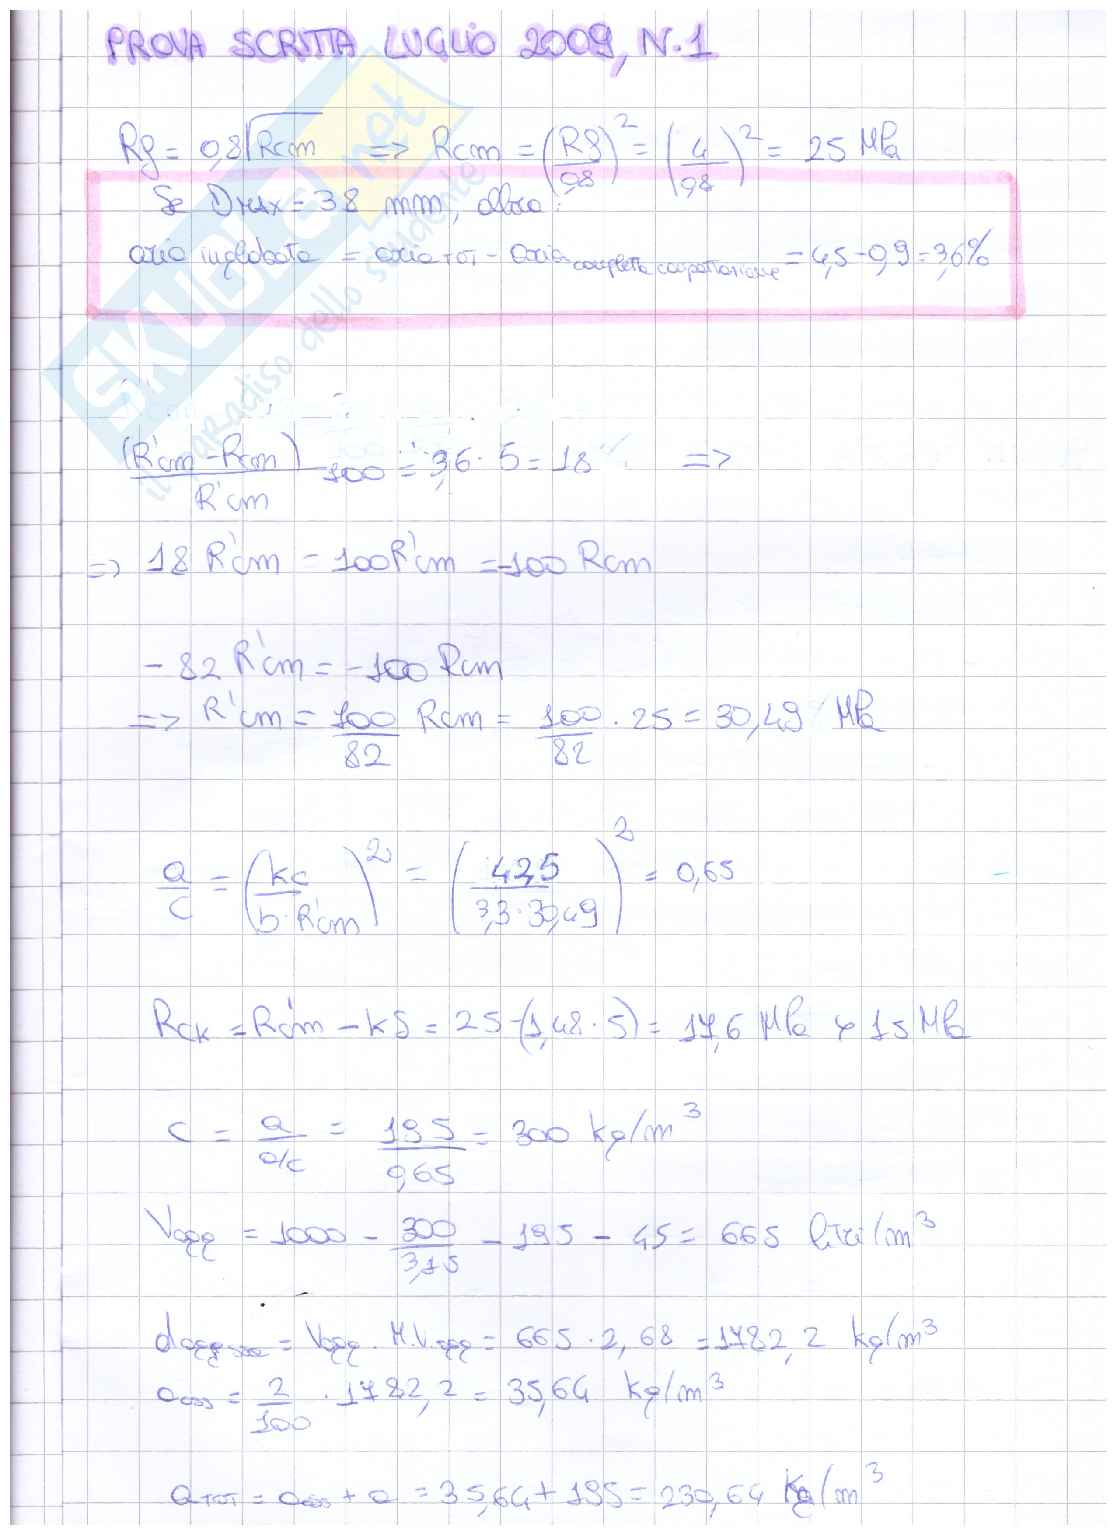 PROVA SCRITTA LUGLIO 2009, N.1
Rf = 0,8 √Rcm => Rcm = (Rf/0,8)² = (4/0,8)² = 25 MPa
Se Dmax = 38 mm, allora:
aria inglobata = aria TOT - aria completa compattazione = 4,5 - 0,9 = 3,6%
(R'cm - Rcm)/R'cm 100 = 3,6 · 5 = 18 =>
=> 18 R'cm = 100R'cm = -100 Rcm
- 82 R'cm = -100 Rcm
=> R'cm = 100/82 Rcm = 100/82 · 25 = 30,49 MPa
a/c = (kc/b·R'cm)² = (42,5/3,3·30,49)² = 0,65
Rck = R'cm - kS = 25-(1,48·5) = 17,6 MPa 15 MPa
c = a/a/c = 195/0,65 = 300 kg/m³
Vagg = 1000 - 300/3,15 - 195 - 45 = 665 litri/m³
dagg = Vagg · M.V.agg = 665 · 2,68 = 1782,2 kg/m³
aass = 2/100 · 1782,2 = 35,64 kg/m³
aTOT = aass + a = 35,64 + 195 = 230,64 kg/m³
SKUOLA.net
il paradiso dello studente